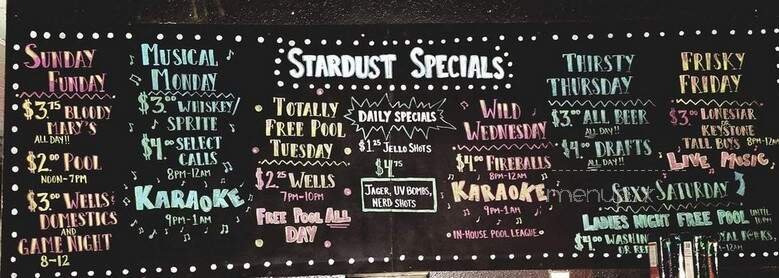 STARDUST SPECIALS
SUNDAY
FUNDAY
$3.75 BLOODY
MARY'S
ALL DAY!!
$2.00 POOL
NOON-7PM
$3.00 WELLS
DOMESTICS
AND
GAME NIGHT
8-12
MUSICAL
MONDAY
$3.00 WHISKEY/
SPRITE
$4.00 SELECT
CALLS
8PM-12AM
KARAOKE
9PM-1AM
TOTALLY
FREE POOL
TUESDAY
$2.25 WELLS
7PM-10PM
FREE POOL ALL
DAY
DAILY SPECIALS
$1.25 JELLO SHOTS
$4.75
JAGER, UV BOMBS,
NERD SHOTS
WILD
WEDNESDAY
$4.00 FIREBALLS
8PM-12AM
KARAOKE
9PM-1AM
IN-HOUSE POOL LEAGUE
THIRSTY
THURSDAY
$3.00 ALL BEER
ALL DAY!!
$4.00 DRAFTS
ALL DAY!!
FRISKY
FRIDAY
$3.00 LONESTAR
OR
KEYSTONE
TALL BOYS 8PM-12AM
LIVE MUSIC
SEXY SATURDAY
LADIES NIGHT FREE POOL UNTIL
$4.00
OR
menu